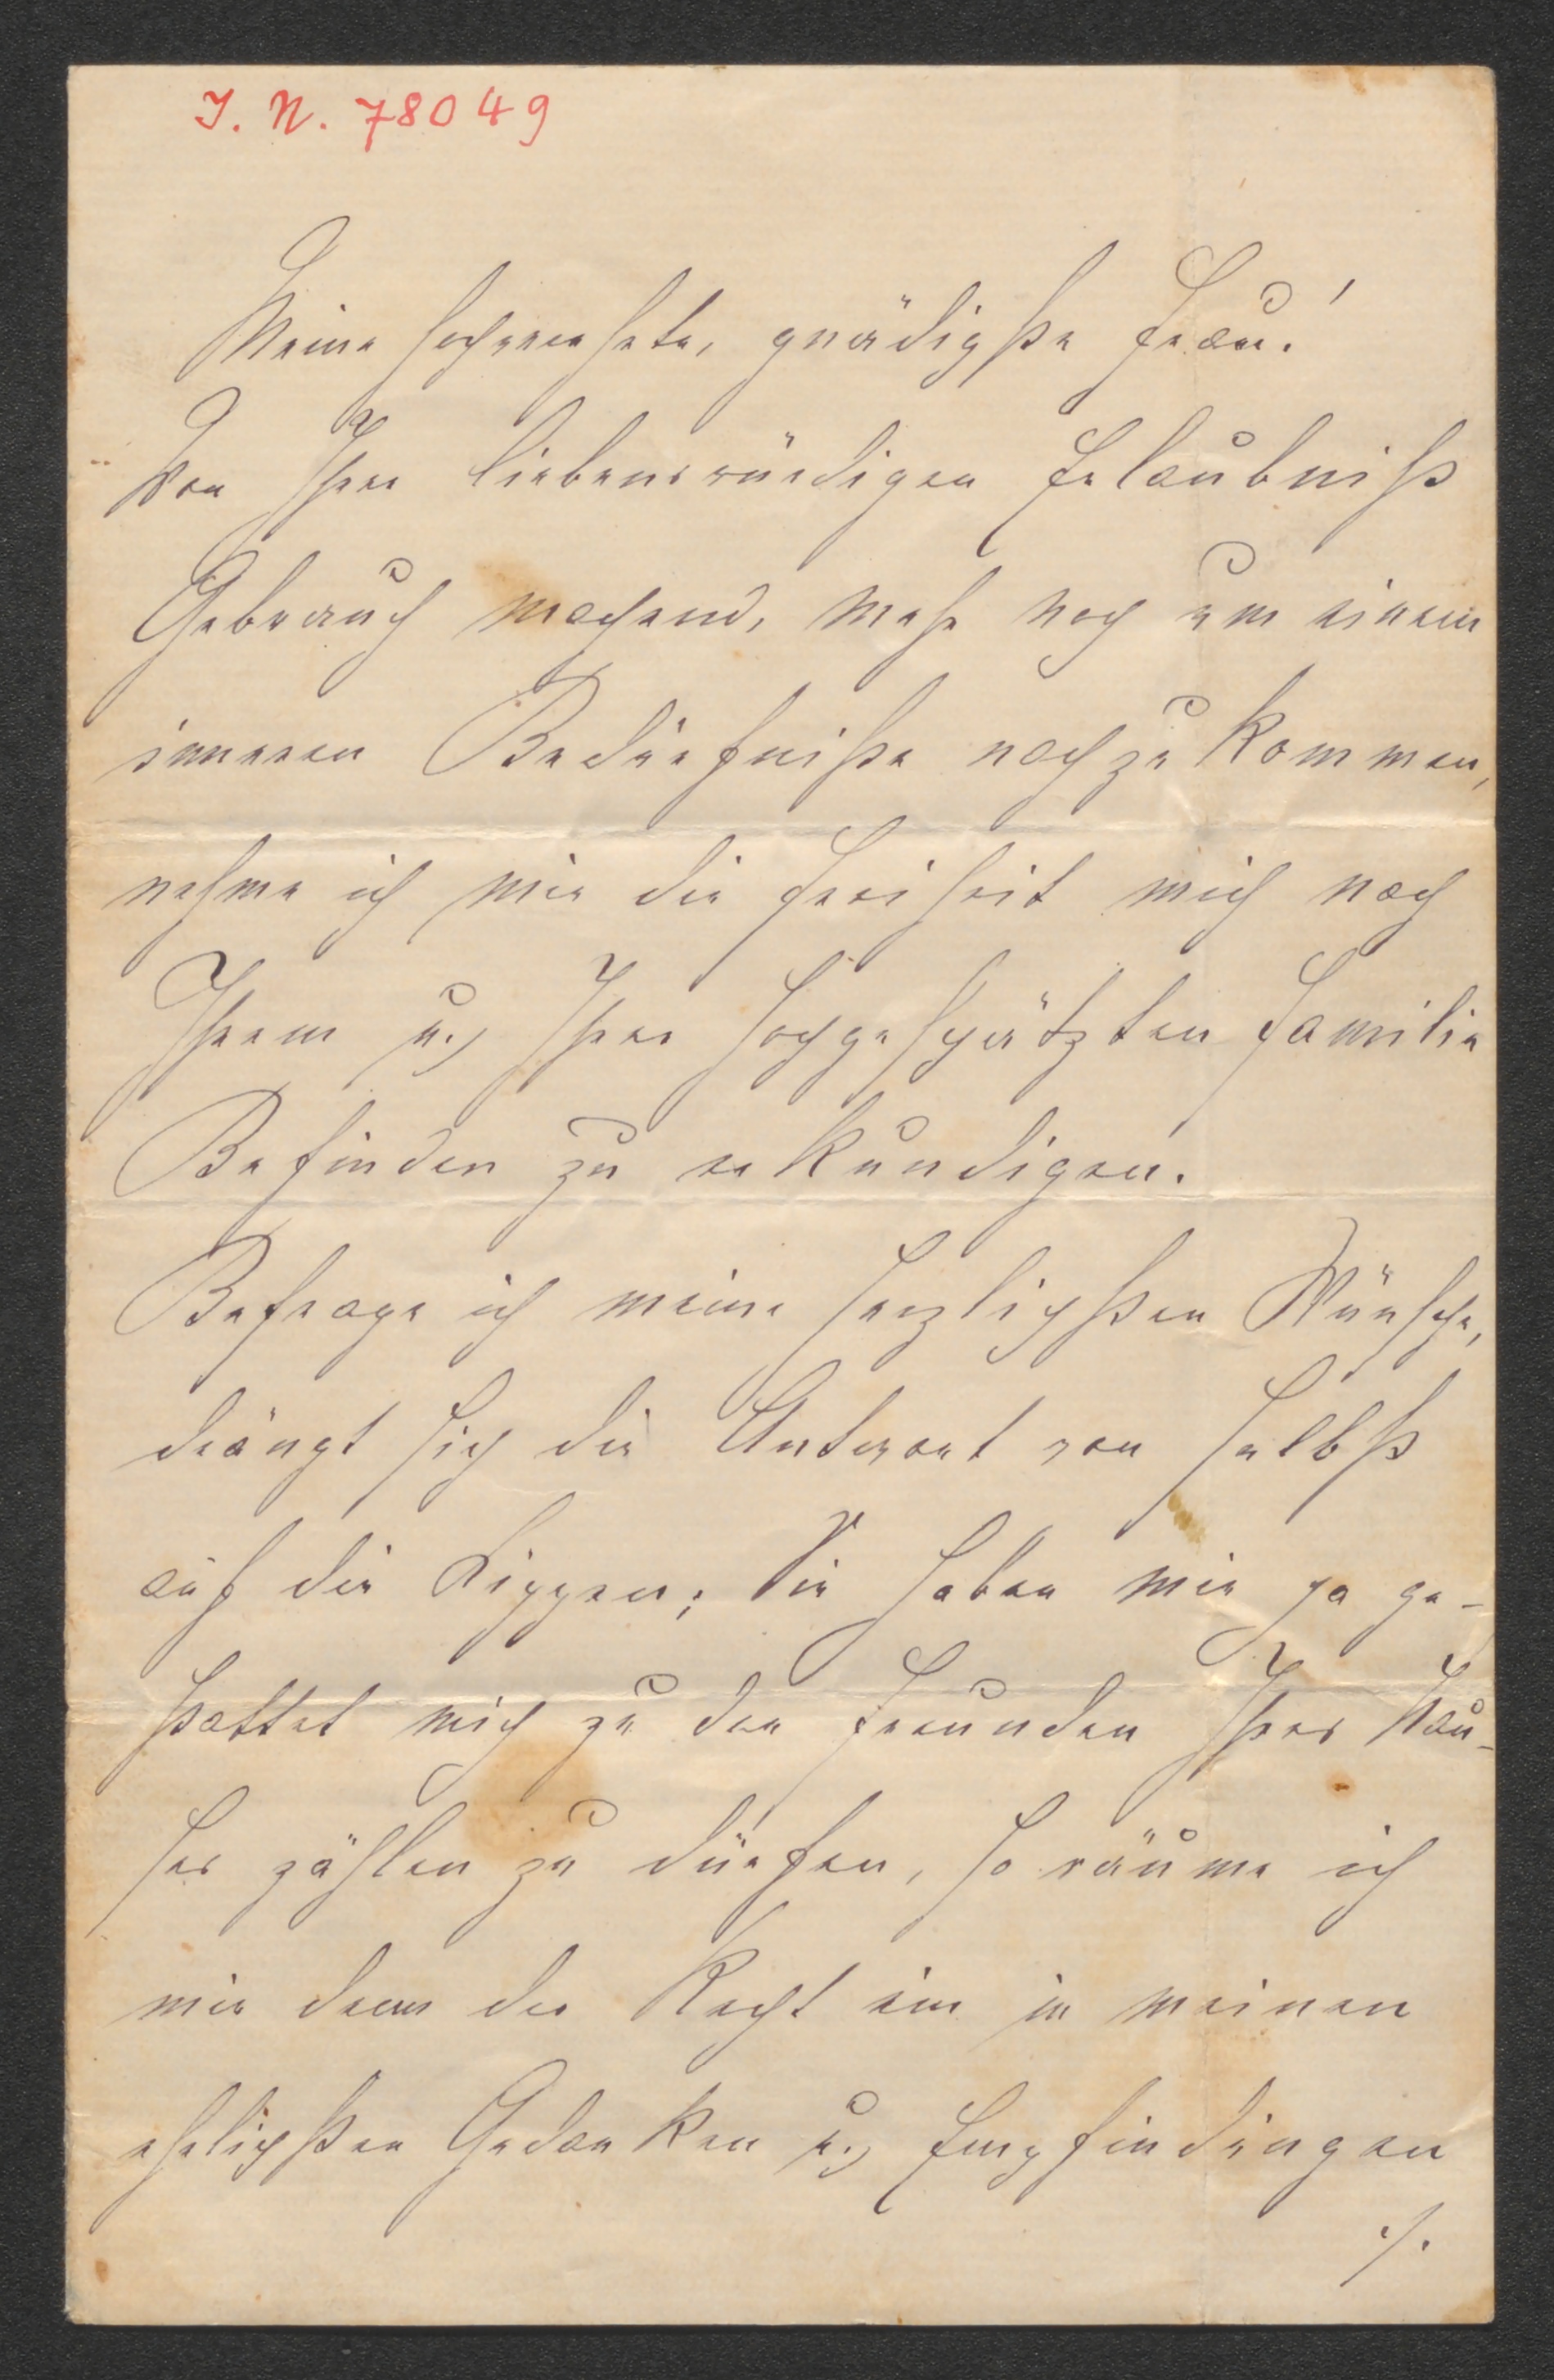 I. N. 78049
Meine hochverehrte, gnädigste Frau!
Von Ihrer liebenswürdigen Erlaubniß
Gebrauch machend, mehr noch um einem
inneren Bedürfniße nachzukommen,
nehme ich mir die Freiheit mich nach
Ihrem u. Ihrer hochgeschätzten Familie
Befinden zu erkundigen.
Befrage ich meine herzlichsten Wünsche,
drängt sich die Antwort von selbst
auf die Lippen; Sie haben mir ja ge-
stattet mich zu den Freunden Ihres Hau-
ses zählen zu dürfen, so räume ich
mir denn das Recht ein in meinen
ehrlichsten Gedanken u. Empfindungen
./.